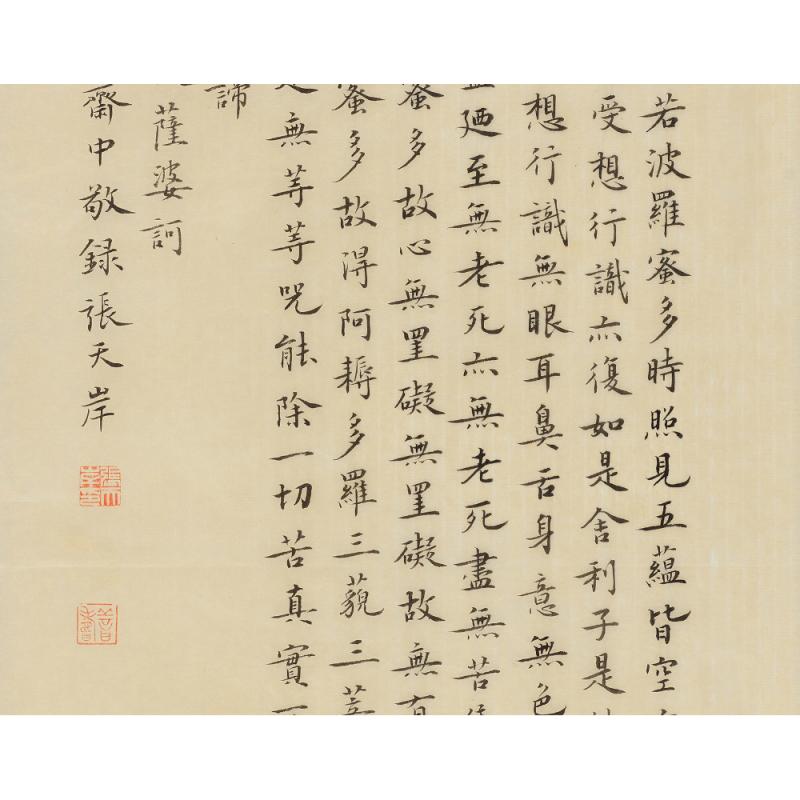 若波羅蜜多時照見五蘊皆空
受想行識亦復如是舍利子是
想行識無眼耳鼻舌身意無色
廼至無老死亦無老死盡無苦
蜜多故心無罣礙無罣礙故無有
蜜多故得阿耨多羅三藐三菩
無等等咒能除一切苦真實
諦
薩婆訶
齋中敬録張天岸